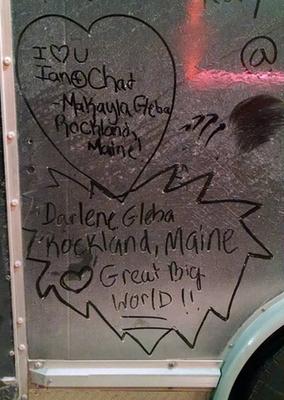 I ♡ U
Ian & Chad
- Makayla Gleba
Rockland,
Maine!
@
Darlene Gleba
Rockland, Maine
♡ Great Big
World!!